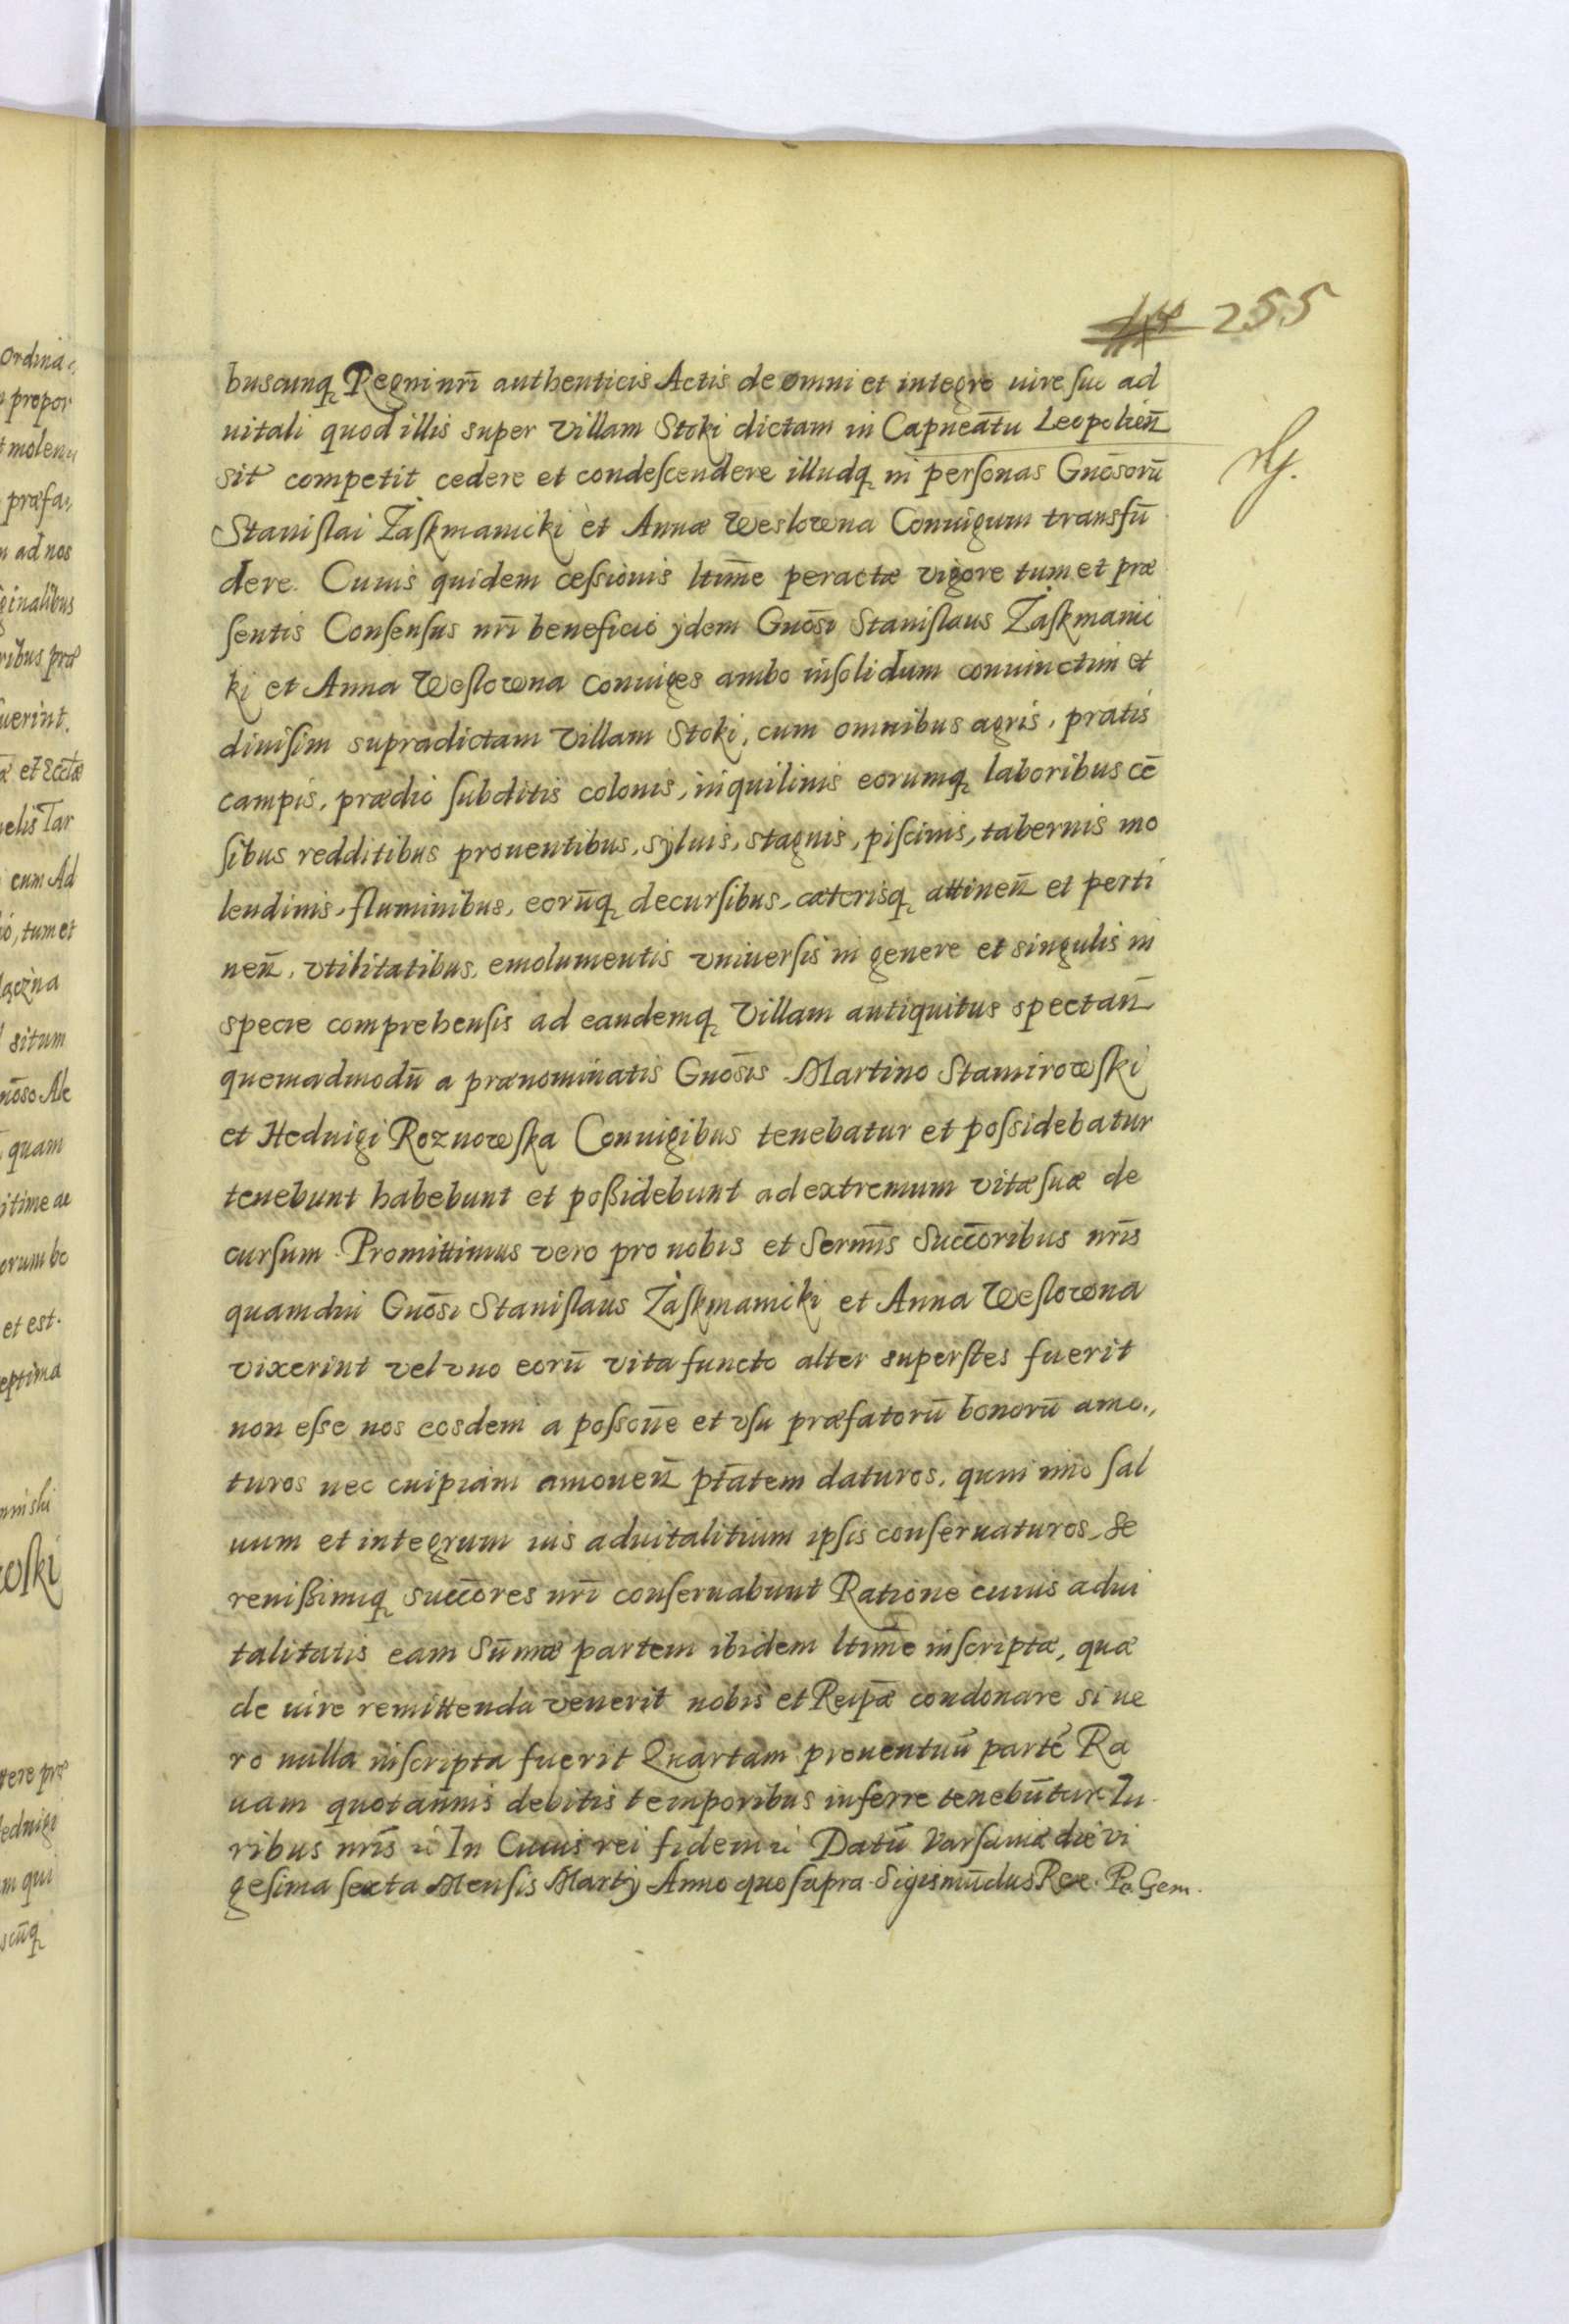 255
buscunq Regni nrī authenticis Actis de omni et integro iure suo ad
uitali quod illis super Villam Stoki dictam in Capneātu Leopolien̄
sit competit cedere et condeſcendere illudq in perſonas Gnōsorū
Staniſlai Żaſkmanicki et Annæ Weslowna Coniugum transfū
dere. Cuius quidem ceſsionis ltīme peractæ vigore tum et præ
ſentis Conſenſus nrī beneficio ijdem Gnōsi Staniſlaus Żaſkmanic
ki et Anna Weſlowna coniuges ambo inſolidum coniunctim et
diuiſim supradictam Villam Stoki, cum omnibus agris, pratis
campis, prædio ſubditis colonis, inquilinis eorumq laboribus cē
ſibus redditibus prouentibus, syluis, stagnis, piſcinis, tabernis mo
lendinis, fluminibus, eorūq decurſibus, cæterisq attinen̄ et perti
nen̄, vtilitatibus, emolumentis vniuerſis in genere et singulis in
specie comprehenſis ad eandemq Villam antiquitus spectan̄
quemadmodū a prænominatis Gnōsis Martino Stamirowſki
et Heduigi Roznowſka Coniugibus tenebatur et poſsidebatur
tenebunt habebunt et poßidebunt ad extremum vitæ ſuæ de
curſum. Promittimus vero pro nobis et Sermīs Succōribus nrīs
quamdiu Gnōsi Staniſlaus Żaſkmanicki et Anna Weſlowna
vixerint vel vno eorū vita functo alter superſtes fuerit
non eſse nos eosdem a poſsoñe et vſu præfatorū bonorū amo.,
turos nec cuipiam amouen̄ ptātem daturos, quin imo ſal
uum et integrum ius aduitalitium ipſis conſeruaturos, Se
renißimiq succōres nrī conſeruabunt Ratione cuius adui
talitatis eam Sūmæ partem ibidem ltīme inſcriptæ, quæ
de iure remittenda venerit nobis et Reipæ condonare si ue
ro nulla inſcripta fuerit Quartam prouentuū partē Ra
uam quotannis debitis temporibus inferre tenebūtur Iu
ribus nrīs etc In Cuius rei fidem etc Datū Varſauiæ die vi
geſima ſexta Menſis Martij Anno quo ſupra Sigismūdus Rex. Pe. Gem.